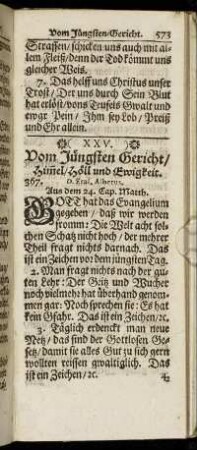 Vom Jüngsten-Gericht. 573
Straffen/ schicken uns auch mit al-
lem Fleiß/ denn der Tod kömmt uns
gleicher Weis.
7. Das helff uns Christus unser
Trost/ Der uns durch sein Blut
hat erlöst/ vons Teufels Gwalt und
ewgr Pein/ Ihm sey Lob/ Preiß
und Ehr allein.
XXV.
Vom Jüngsten Gericht/
Himel/ Höll und Ewigkeit.
367. D. Eras. Alberus.
Aus dem 24. Cap. Matth.
GOTT hat das Evangelium
gegeben/ daß wir werden
fromm: Die Welt acht sol-
chen Schatz nicht hoch/ der mehrer
Theil fragt nichts darnach. Das
ist ein Zeichen vor dem jüngsten Tag.
2. Man fragt nichts nach der gu-
ten Lehr: Der Geitz und Wucher
noch vielmehr hat überhand genom-
men gar: Noch sprechen sie: Es hat
kein Gfahr. Das ist ein Zeichen/ ꝛc.
3. Täglich erdenckt man neue
Netz/ das sind der Gottlosen Ge-
setz/ damit sie alles Gut zu sich gern
wollten reissen gwaltiglich. Das
ist ein Zeichen/ ꝛc. 4.